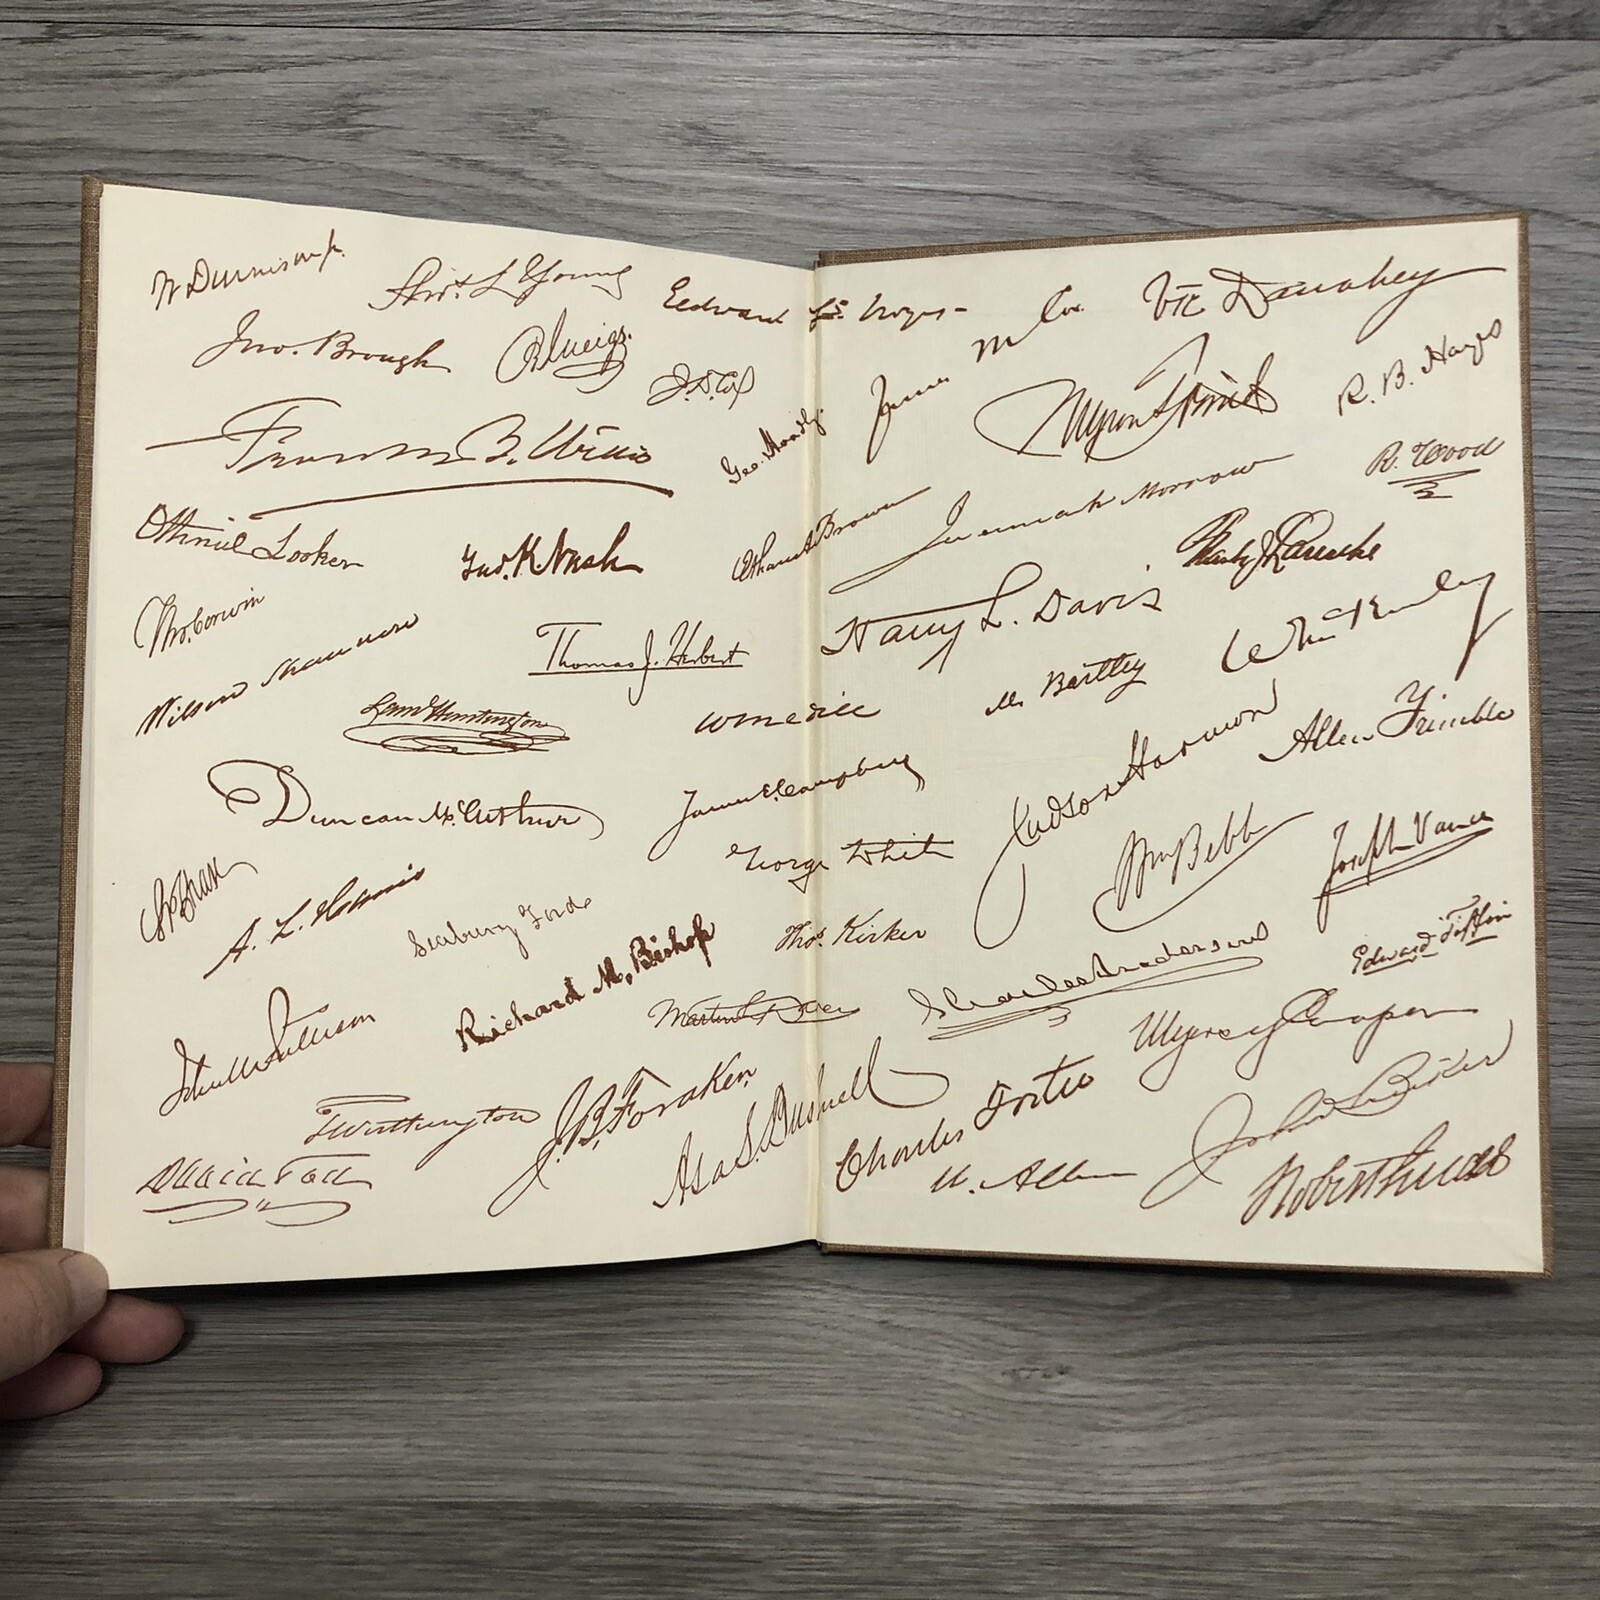 W Dennison Jr.
Thos. L Young
Edward F. Noyes
Jno. Brough
J.D. Cox
Geo. Hoadly
Frank B. Willis
Othniel Looker
Geo. K. Nash
Tho. Corwin
Wilson Shannon
Thomas J. Herbert
Saml Huntington
Duncan McArthur
James E. Campbell
George White
A. L. Harris
Seabury Ford
Richard M. Bishop
Thos. Kirker
John M Pattison
Martin L Davey
T Worthington
J. B. Foraker
Asa S. Bushnell
David Tod
James M Cox
Vic Donahey
Myron T Herrick
R. B. Hayes
Ethan A Brown
Jeremiah Morrow
R. Wood
Harry L. Davis
M Bartley
Wm McKinley
Judson Harmon
Allen Trimble
Wm Bebb
Joseph Vance
Charles Anderson
Edward Tiffin
Myers Y Cooper
Charles Foster
W. Allen
John W Bricker
Robert Lucas